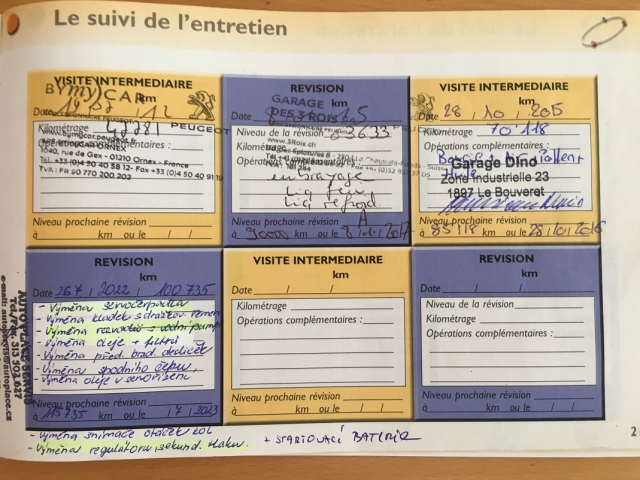 Le suivi de l'entretien
VISITE INTERMEDIAIRE
km
BYmyCAR
Date
Kilométrage
PEUGEOT
www.bymycar.peugeot.fr
BYMYCAR ORNEX
1640, rue de Gex - 01210 Ornex - France
Tél. +33 (0)4 50 40 58 12- Fax +33 (0)4 50 40 91
TVA: FR 80 770 200 202
Niveau prochaine révision
à km ou le / /
REVISION
km
GARAGE
DES 3 ROIS
Date
Niveau de la révision
Kilométrage
Opérations complémentaires :
embrayage
Liq frein
Liq refroid.
Niveau prochaine révision
à 90000 km ou le
VISITE INTERMEDIAIRE
km
Date 28 / 10 / 2015
Kilométrage 70'118
Opérations complémentaires :
Garage Dind
Zone Industrielle 23
1897 Le Bouveret
Niveau prochaine révision
à 85118 km ou le 28/10/2016
REVISION
km
Date 26.7. / 2022 / 100 735
- Výměna servočerpadla
- Výměna kladek s drážkov. řemen
- Výměna rozvodů s vodní pump
- Výměna oleje + filtrů
- Výměna před. brzd. destiček
- Výměna spodního čepu,
- Výměna oleje v servořízení
Niveau prochaine révision
à 115735 km ou le / 7 / 2023
- Výměna snímače otáček kol
- Výměna regulátoru sekund. tlaku.
+ STARTOVACÍ BATERIE
VISITE INTERMEDIAIRE
km
Date / /
Kilométrage
Opérations complémentaires :
Niveau prochaine révision
à km ou le / /
REVISION
km
Date / /
Niveau de la révision
Kilométrage
Opérations complémentaires :
Niveau prochaine révision
à km ou le / /
2